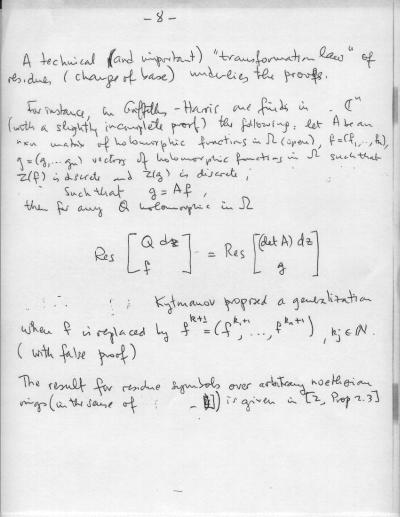 - 8 -
A technical (and important) "transformation law" of
residues (change of base) underlies the proofs.
For instance, in Griffiths - Harris one finds in ℂⁿ
(with a slightly incomplete proof) the following: let A be an
n×n matrix of holomorphic functions in Ω (open), f=(f₁,..,fₙ),
g=(g₁,...gₙ) vectors of holomorphic functions in Ω such that
Z(f) is discrete and Z(g) is discrete,
such that g = Af,
then for any Q holomorphic in Ω
Res [Q dz / f] = Res [(det A) dz / g]
Kytmanov proposed a generalization
when f is replaced by f^{k+1} = (f^{k₁+1}, ..., f^{kₙ+1}), kj ∈ ℕ.
(with false proof)
The result for residue symbols over arbitrary noetherian
rings (in the sense of ) is given in [2, Prop 2.3]